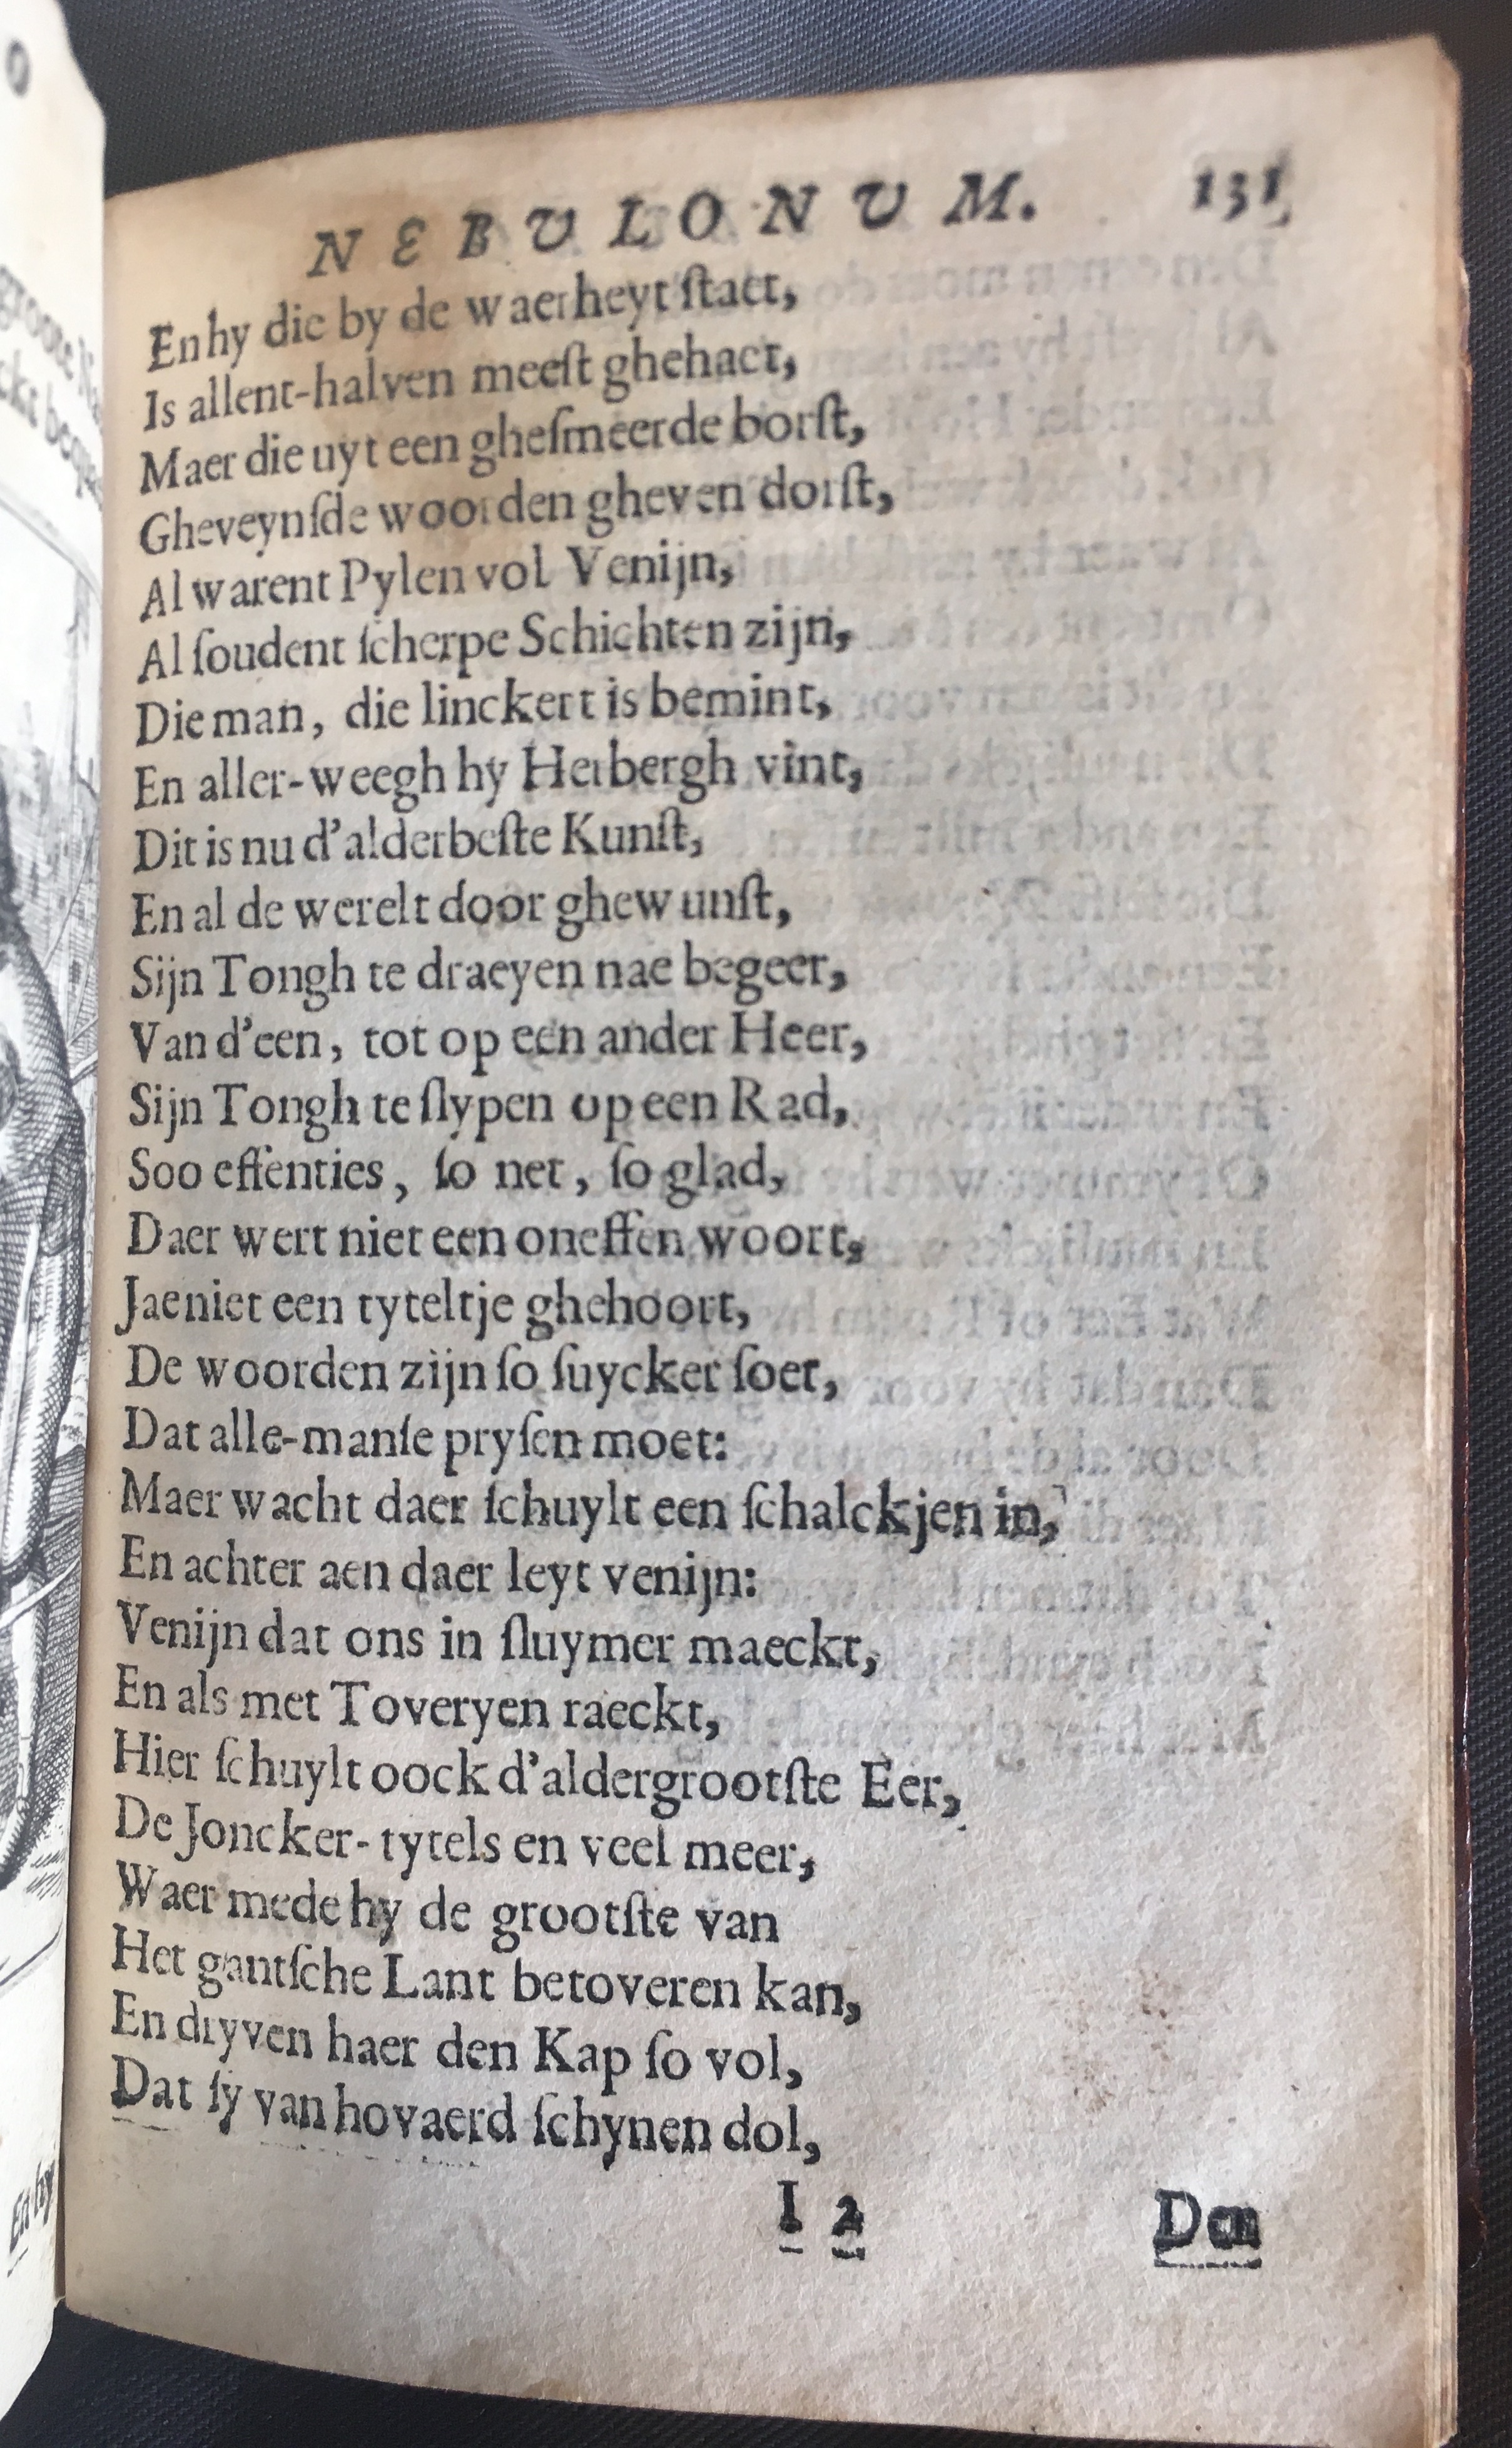 NEBULONUM. 131
En hy die by de waerheyt ſtaet,
Is allent-halven meeſt ghehaet,
Maer die uyt een gheſmeerde borſt,
Gheveynſde woorden gheven dorſt,
Al warent Pylen vol Venijn,
Al ſoudent ſcherpe Schichten zijn,
Die man, die linckert is bemint,
En aller-weegh hy Herbergh vint,
Dit is nu d'alderbeſte Kunſt,
En al de werelt door ghewunſt,
Sijn Tongh te draeyen nae begeer,
Van d'een, tot op een ander Heer,
Sijn Tongh te ſlypen op een Rad,
Soo effenties, ſo net, ſo glad,
Daer wert niet een oneffen woort,
Jae niet een tyteltje ghehoort,
De woorden zijn ſo ſuycker ſoet,
Dat alle-manſe pryſen moet:
Maer wacht daer ſchuylt een ſchalckjen in,
En achter aen daer leyt venijn:
Venijn dat ons in ſluymer maeckt,
En als met Toveryen raeckt,
Hier ſchuylt oock d'aldergrootſte Eer,
De Joncker-tytels en veel meer,
Waer mede hy de grootſte van
Het gantſche Lant betoveren kan,
En dryven haer den Kap ſo vol,
Dat ſy van hovaerd ſchynen dol,
I 2 Den